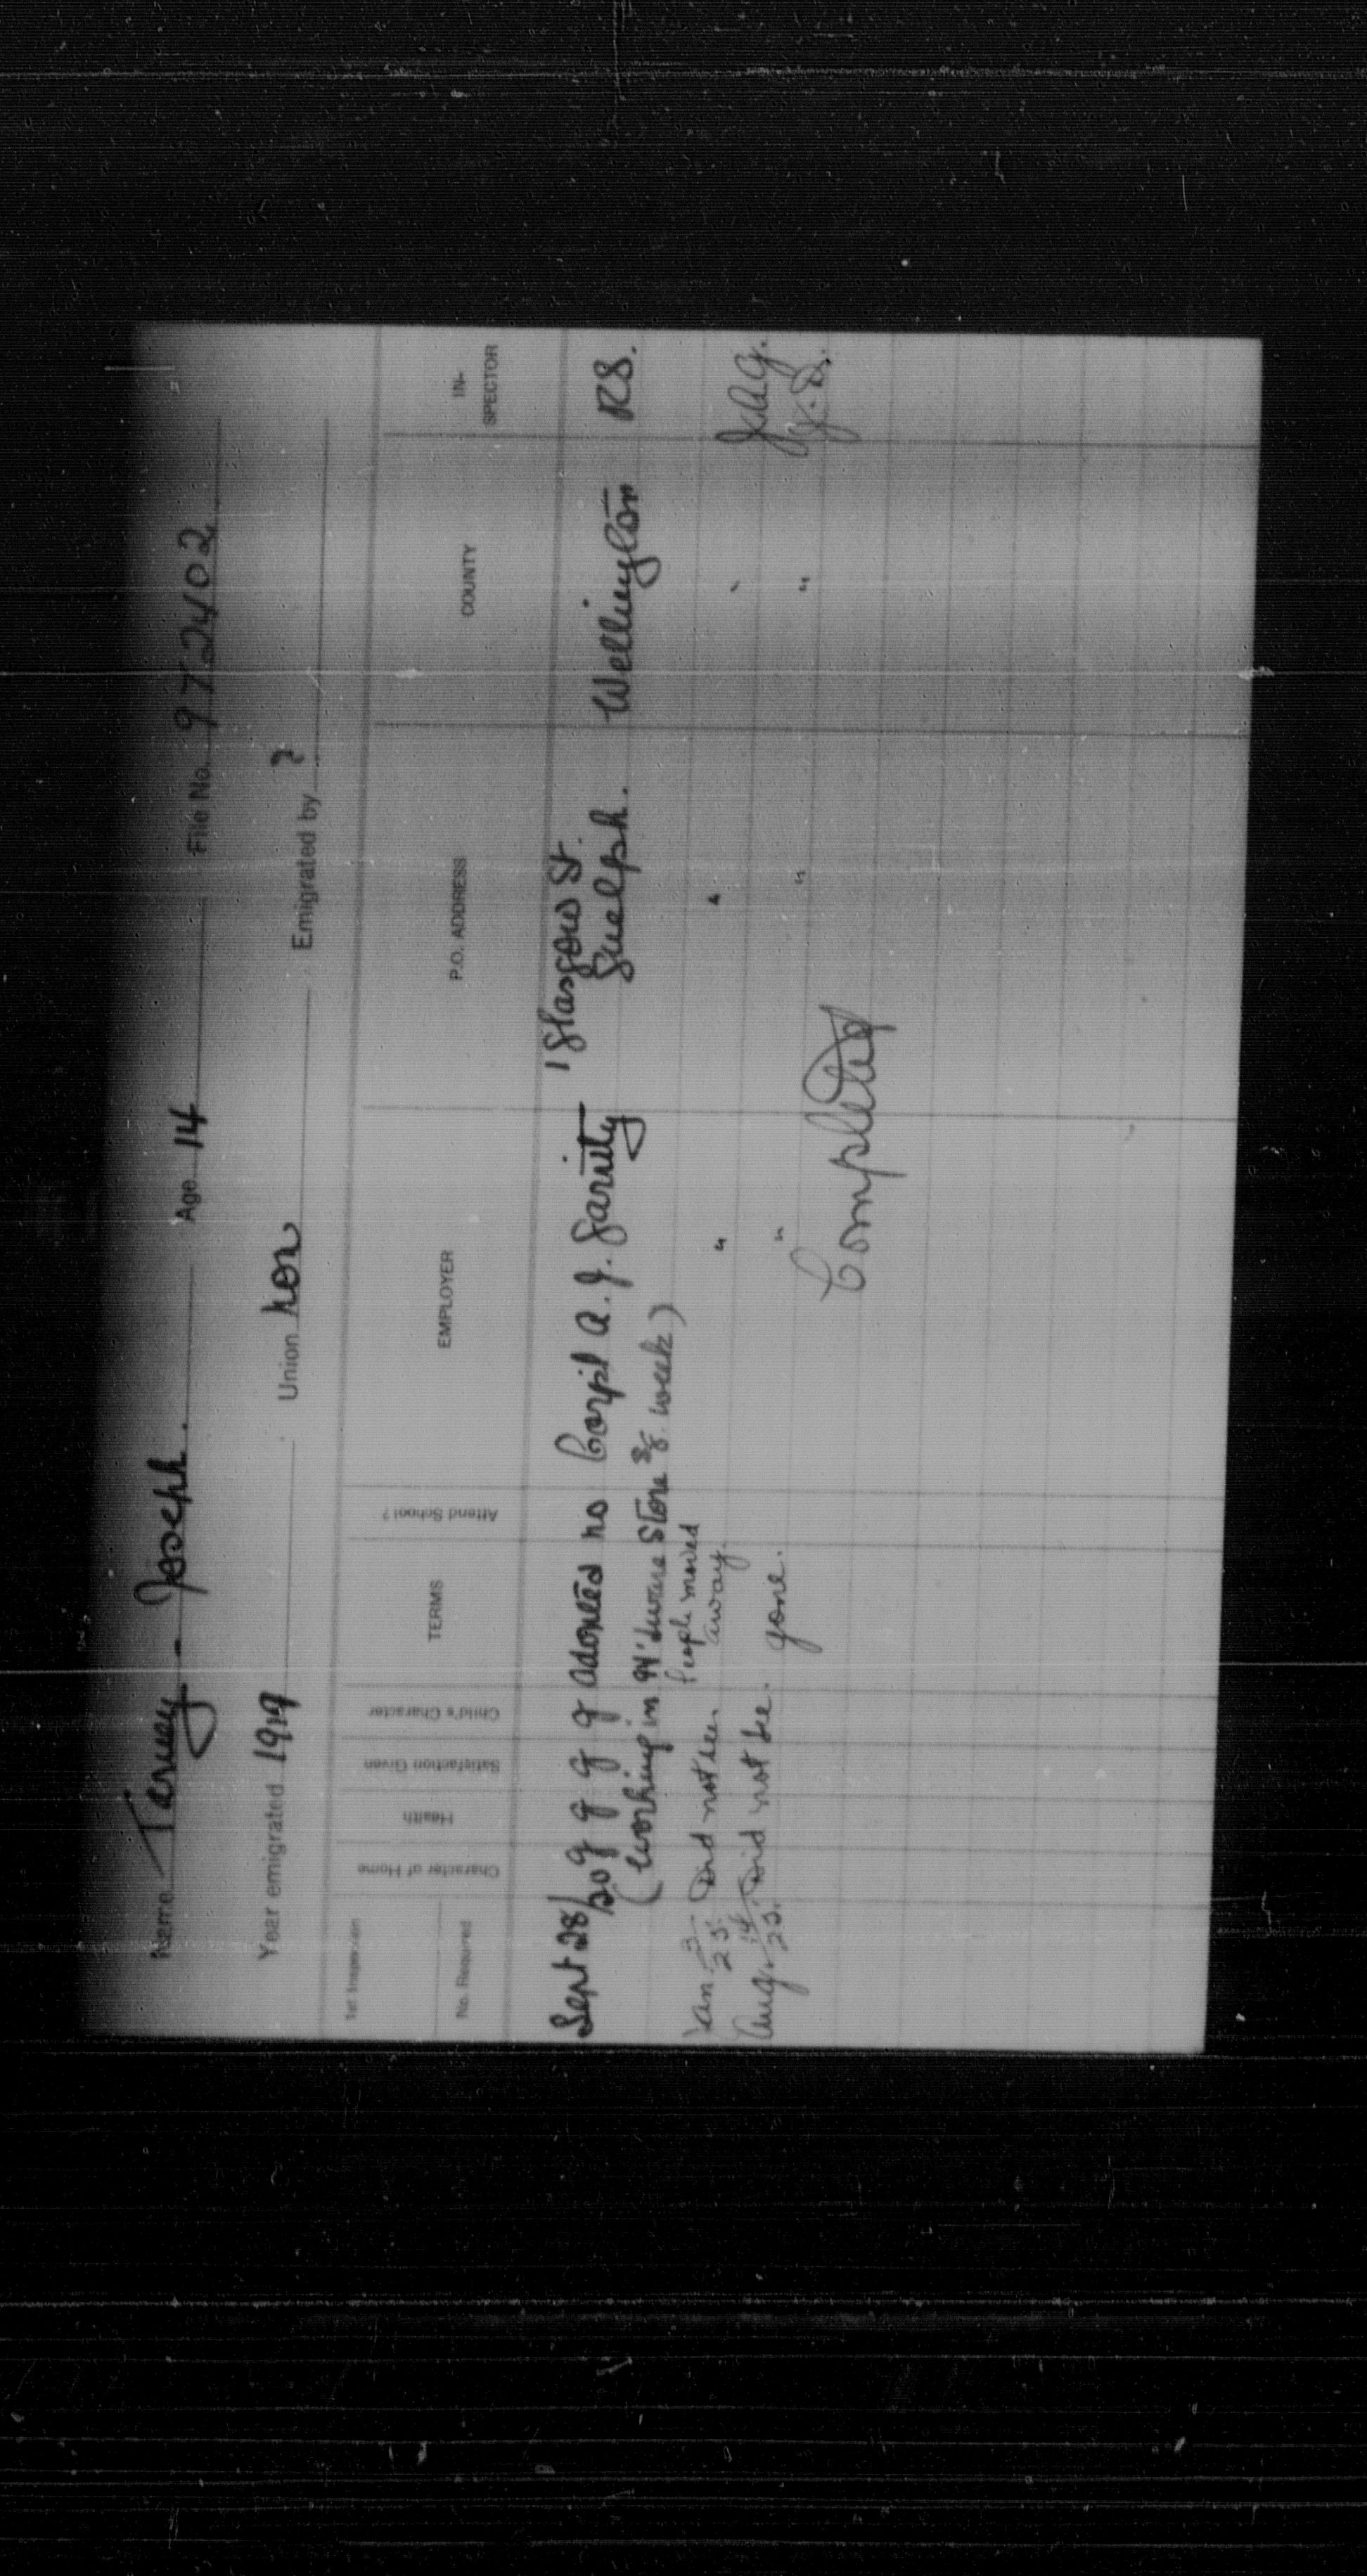 Name Tarney - Joseph. Age 14 File No. 972402
Year emigrated 1919 Union non Emigrated by ?
1st Inspection
No. Required
Character of Home
Health
Satisfaction Given
Child's Character
TERMS
Attend School?
EMPLOYER
P.O. ADDRESS
COUNTY
IN-
SPECTOR
Sept 28/20 g g g g Adopted no Corpl A. J. Garrity 1 Glasgow St. Guelph. Wellington RS.
(Working in H'dware Store $8. week)
Jan 3/23. Did not see. People moved away. " " " J.A.G.
Aug. 14/23. Did not see. gone. " " "
Completed